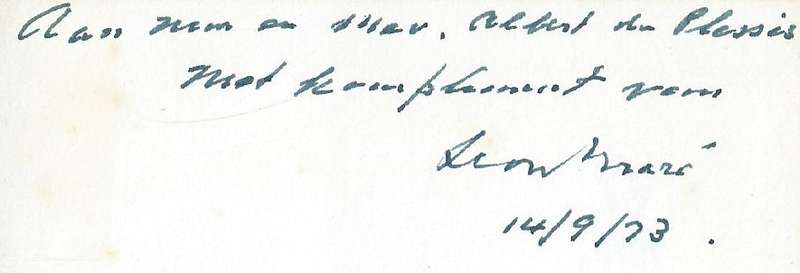 Aan Mnr en Mev. Albert du Plessis
Met kompliment van
Leon Maré
14/9/73.